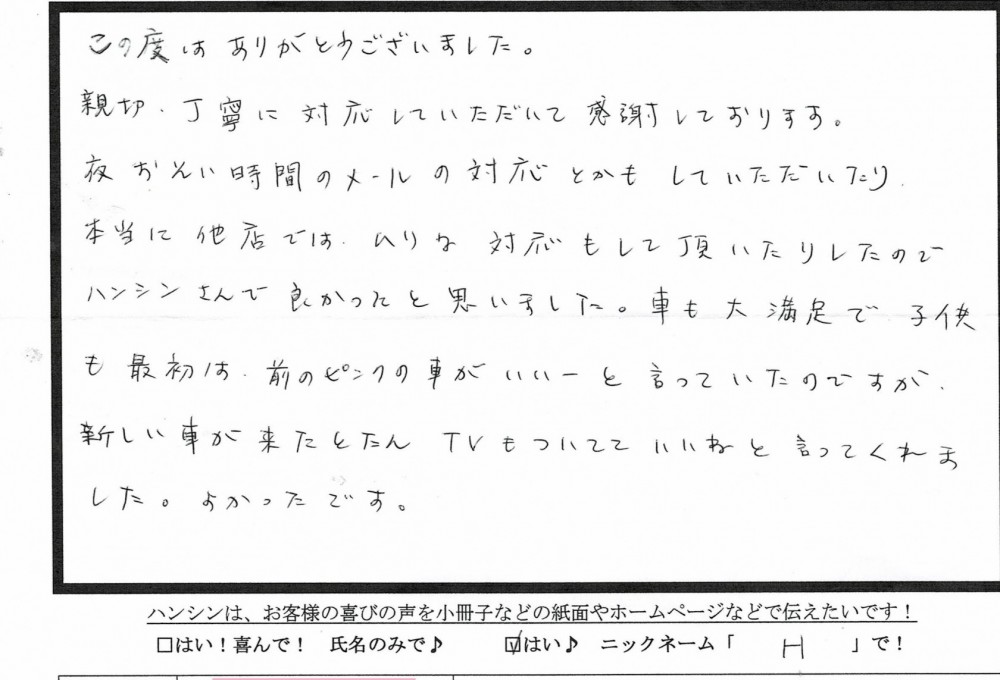 この度は ありがとうございました。
親切、丁寧に 対応していただいて 感謝しております。
夜 おそい 時間の メールの 対応 とかも していただいたり、
本当に 他店では、ムリな 対応もして頂いたりしたので
ハンシン さんで 良かったと 思いました。車も 大満足で 子供
も 最初は、前のピンクの車が いいーと 言っていたのですが、
新しい 車が 来たとたん TVもついてて いいねと 言ってくれま
した。よかったです。
ハンシンは、お客様の喜びの声を小冊子などの紙面やホームページなどで伝えたいです！
□はい！喜んで！ 氏名のみで♪ ☑はい♪ ニックネーム「 H 」で！